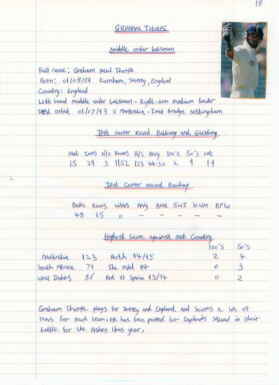 18
GRAHAM THORPE
Middle order batsman
Full name: Graham Paul Thorpe
Born: 01/08/69 Farnham, Surrey, England
Country: England
Left hand middle order batsman - Right arm medium bowler
Test debut 01/07/93 v Australia - Trent Bridge Nottingham
Test career record Batting and Fielding
Mat Inns N/O Runs H/S Avg 100's 50's
15 29 2 1152 123 2 9 14
Test career record Bowling
Balls Runs Wkts Avg Best 5WI
Highest Score against each Country
100's 50's
Australia 123 Perth 94/95 2 4
South Africa The Oval 94 0 3
West Indies Port of Spain 93/94 0 2
Graham Thorpe plays for Surrey and England and scores a lot of
runs for each team. He has been picked for England's squad in their
battle for the Ashes this year.